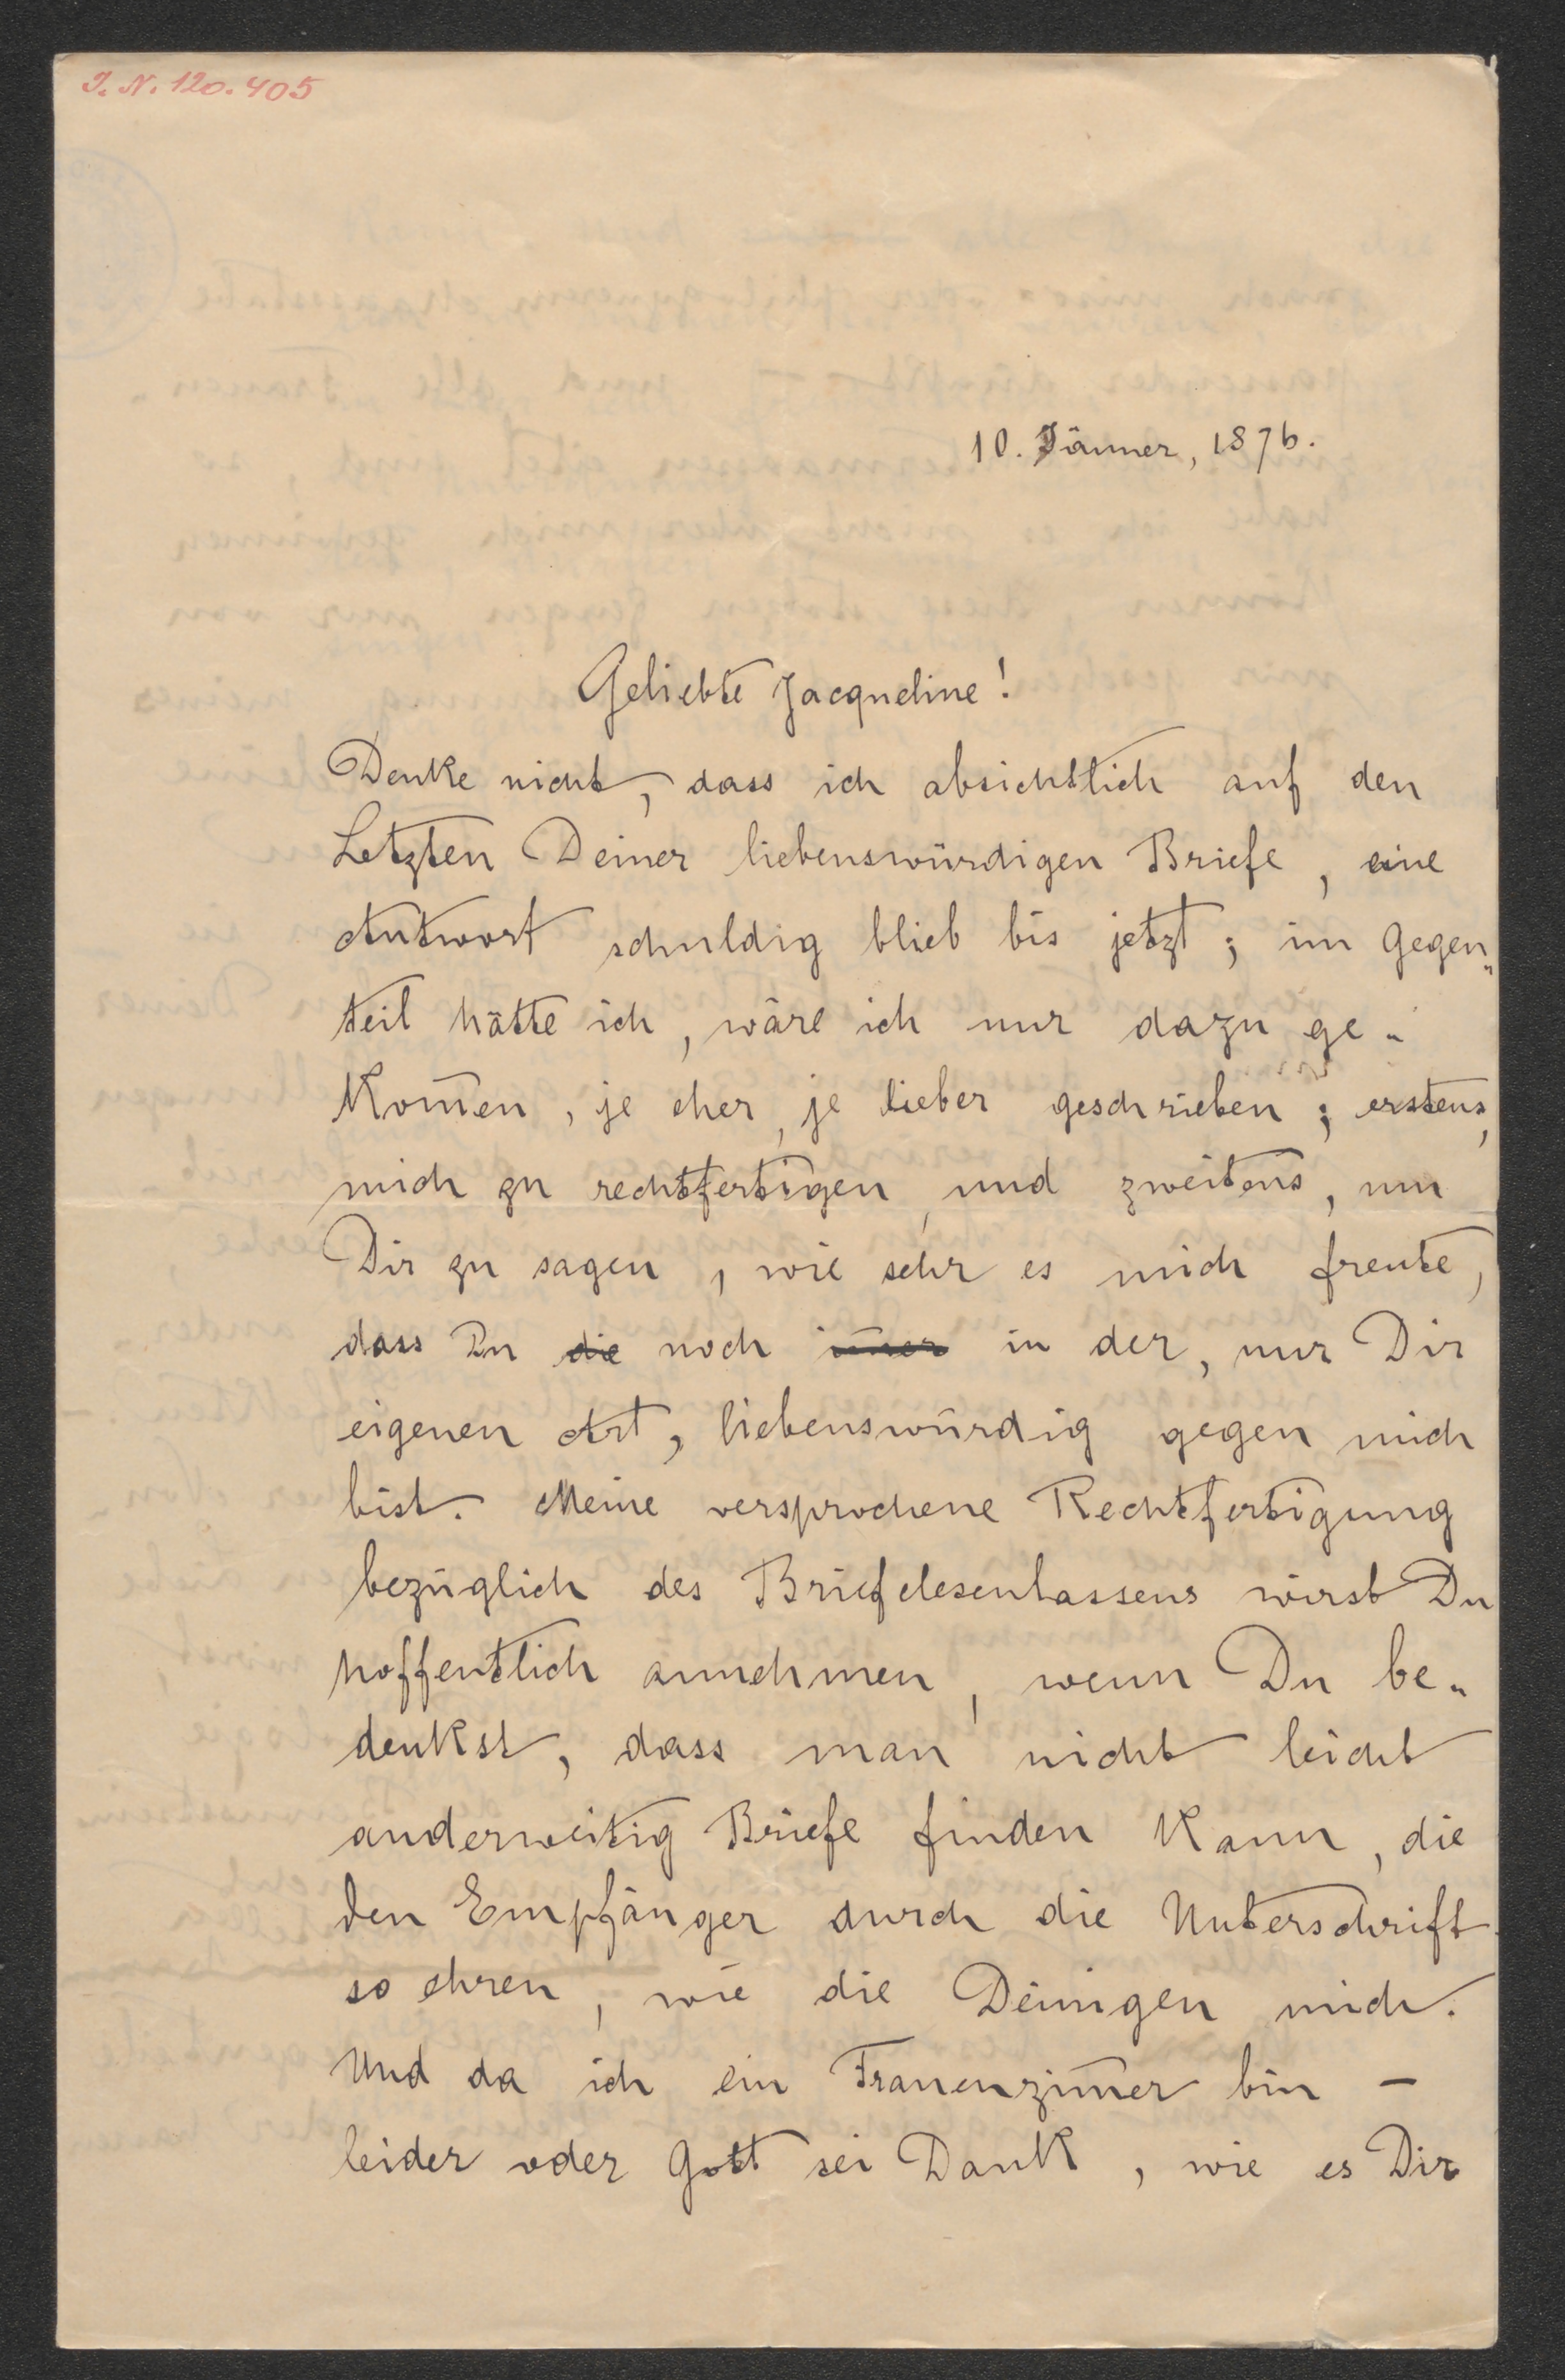 J. N. 120.405
10. Jänner, 1876.
Geliebte Jacqueline!
Denke nicht, dass ich absichtlich auf den
Letzten Deiner liebenswürdigen Briefe, eine
Antwort schuldig blieb bis jetzt; im Gegen„
teil hätte ich, wäre ich nur dazu ge„
Kom̄en, je eher, je lieber geschrieben; erstens,
mich zu rechtfertigen, und zweitens, um
Dir zu sagen, wie sehr es mich freute,
dass Du die noch im̄er in der, nur Dir
eigenen Art, liebenswürdig gegen mich
bist. Meine versprochene Rechtfertigung
bezüglich des Briefelesenlassens wirst Du
hoffentlich annehmen, wenn Du be„
denkst, dass man nicht leicht
anderweitig Briefe finden Kann, die
den Empfänger durch die Unterschrift
so ehren, wie die Deinigen mich.
Und da ich ein Frauenzim̄er bin –
leider oder Gott sei Dank, wie es Dir